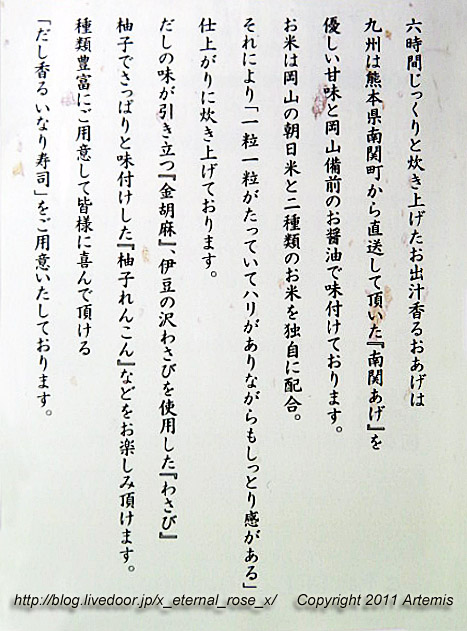 六時間じっくりと炊き上げたお出汁香るおあげは
九州は熊本県南関町から直送して頂いた『南関あげ』を
優しい甘味と岡山備前のお醤油で味付けております。
お米は岡山の朝日米と二種類のお米を独自に配合。
それにより「一粒一粒がたっていてハリがありながらもしっとり感がある」
仕上がりに炊き上げております。
だしの味が引き立つ『金胡麻』、伊豆の沢わさびを使用した『わさび』
柚子でさっぱりと味付けした『柚子れんこん』などをお楽しみ頂けます。
種類豊富にご用意して皆様に喜んで頂ける
「だし香るいなり寿司」をご用意いたしております。
http://blog.livedoor.jp/x_eternal_rose_x/ Copyright 2011 Artemis